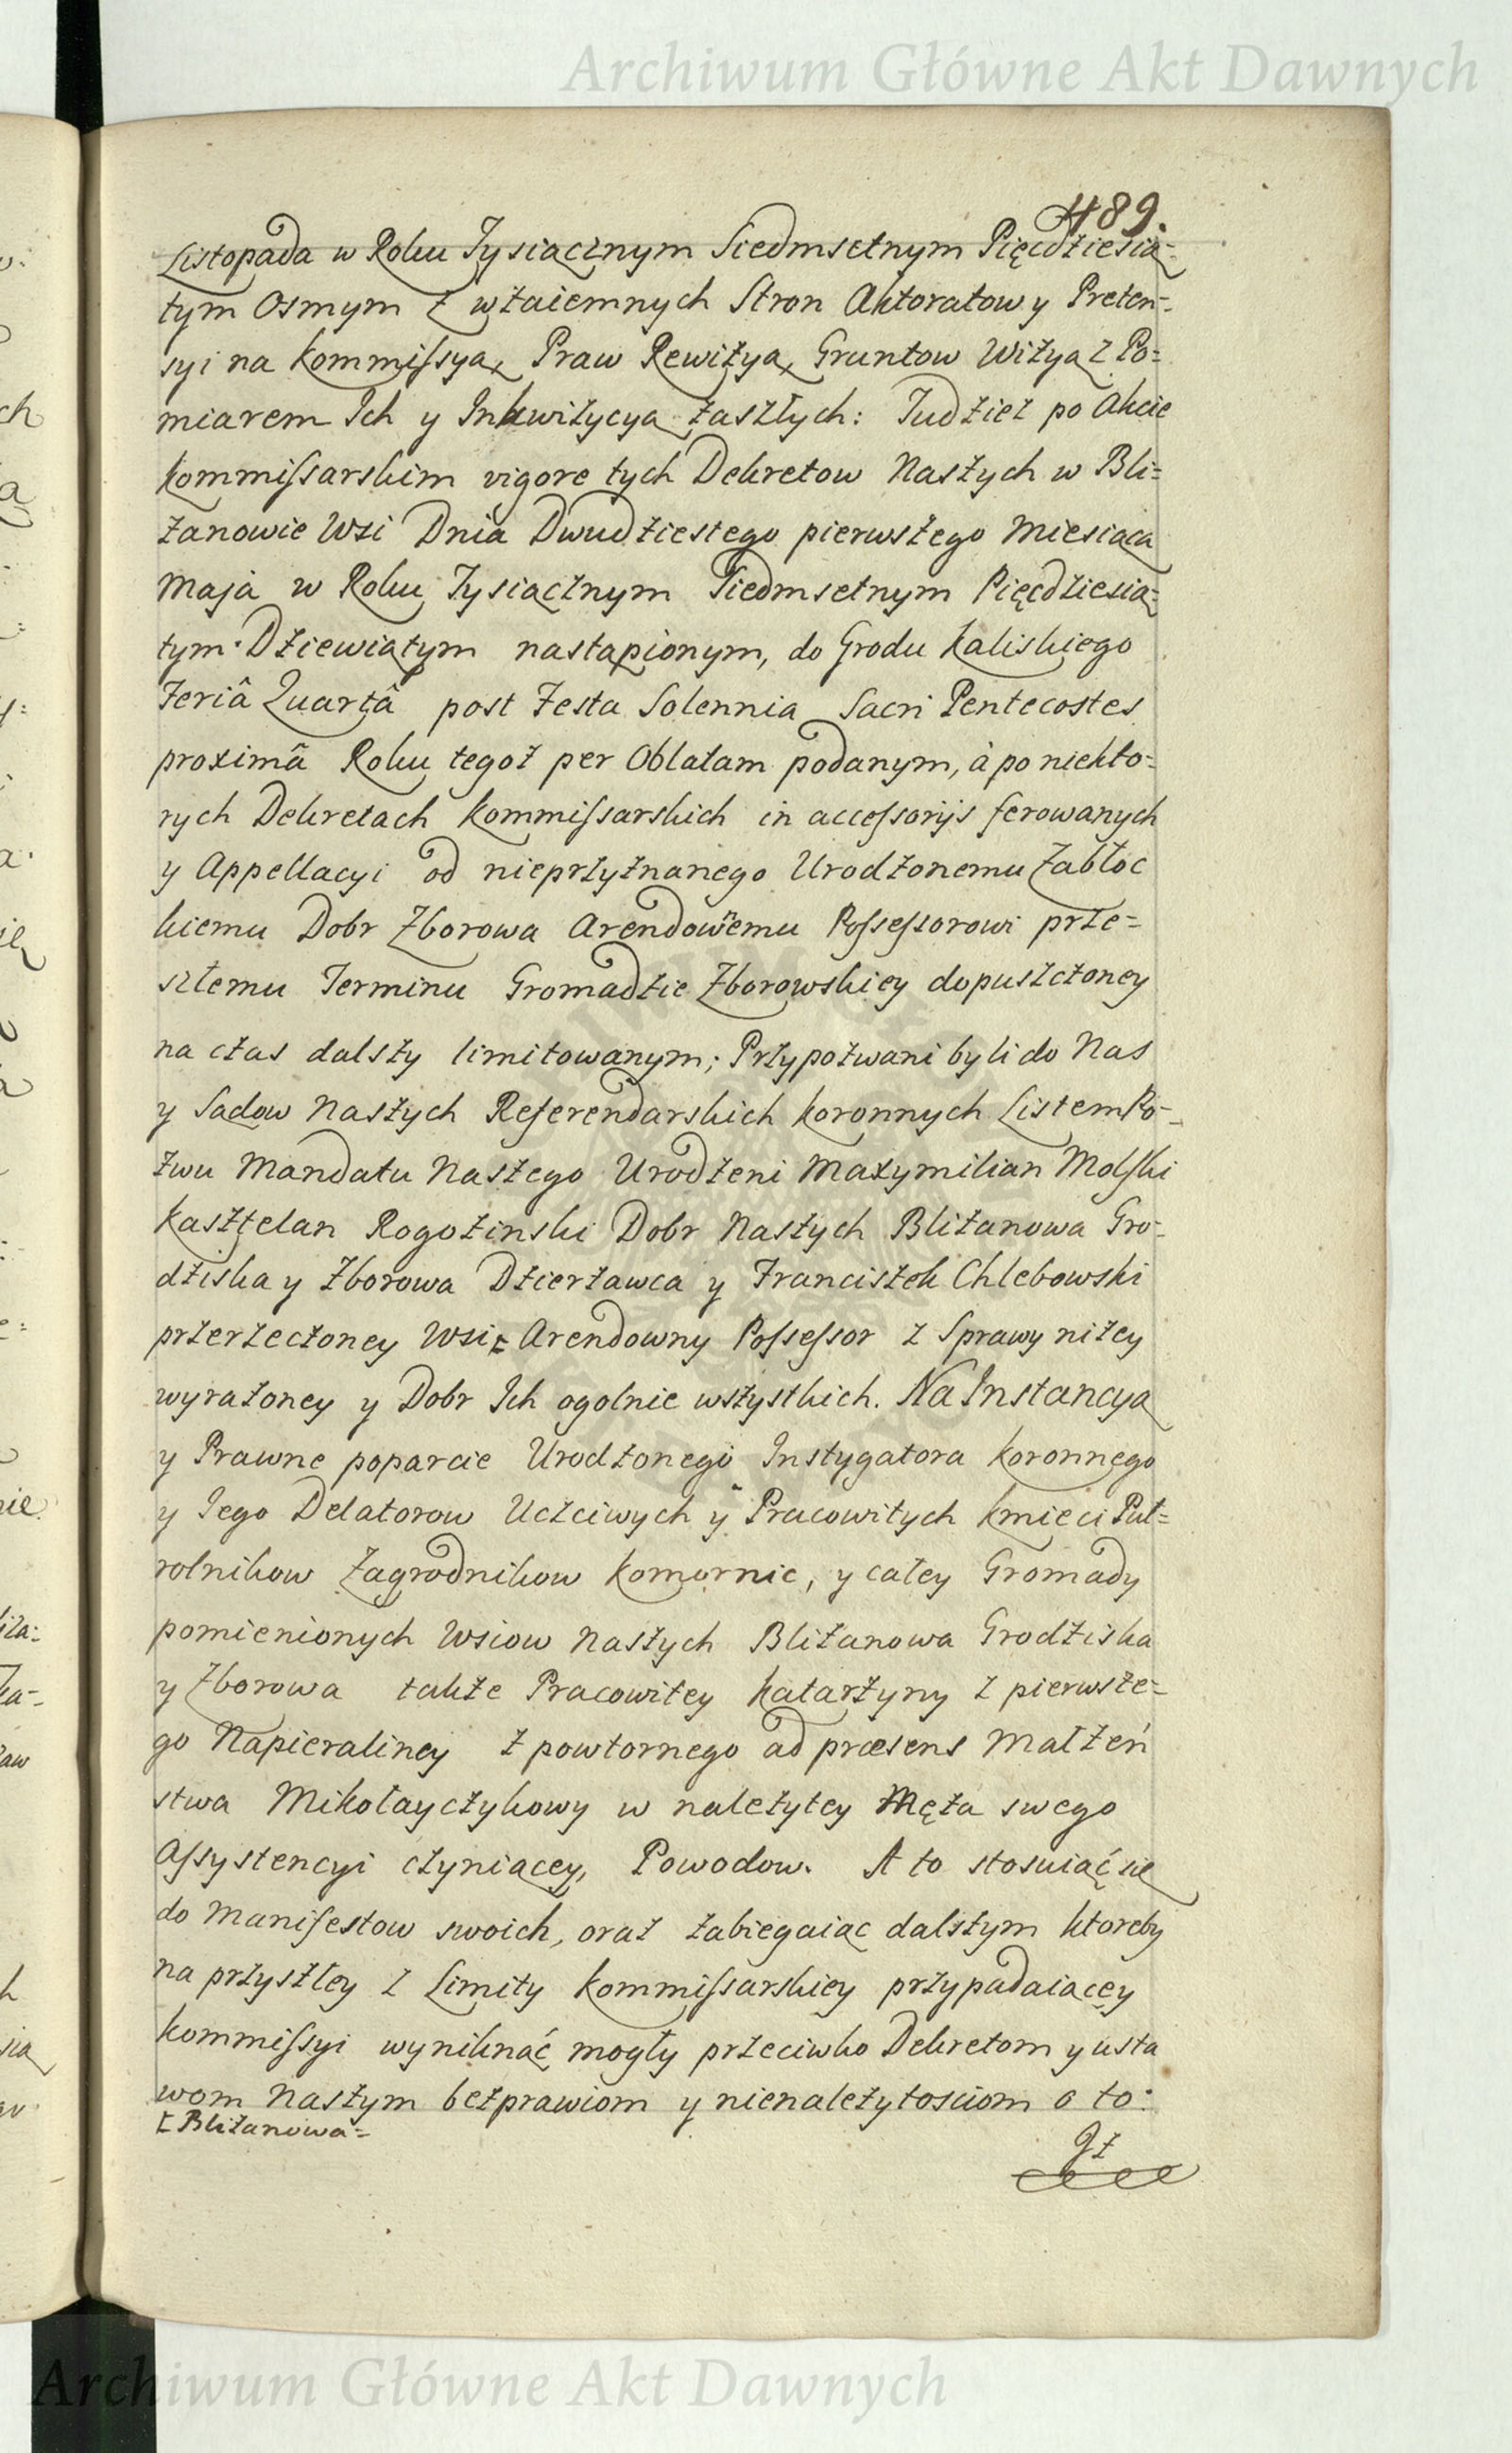 Archiwum Główne Akt Dawnych
489.
Listopada w Roku Tysiącznym Siedmsetnym Pięcdziesią=
tym Osmym z wzaiemnych Stron Aktoratow y Preten=
syi na Kommissyą, Praw Rewizyą, Gruntow Wizyą z Po=
miarem Ich y Inkwizycyą zaszłych: Tudziez po Akcie
Kommissarskim vigore tych Dekretow Naszych w Bli=
zanowie Wsi Dnia Dwudziestego pierwszego Miesiąca
Maja w Roku Tysiącznym Siedmsetnym Pięcdziesią=
tym Dziewiątym nastąpionym, do Grodu Kaliskiego
Feriâ Quartâ post Festa Solennia Sacri Pentecostes
proximâ Roku tegoz per Oblatam podanym, à po niekto=
rych Dekretach Kommissarskich in accessorijs ferowanych
y Appellacyi od nieprzyznanego Urodzonemu Zabłoc
kiemu Dobr Zborowa Arendownemu Possessorowi prze=
szłemu Terminu Gromadzie Zborowskiey dopuszczoney
na czas dalszy limitowanym; Przypozwani byli do Nas
y Sądow Naszych Referendarskich Koronnych Listem Po=
zwu Mandatu Naszego Urodzeni Maxymilian Molski
Kasztelan Rogozinski Dobr Naszych Blizanowa Gro=
dziska y Zborowa Dzierzawca y Franciszek Chlebowski
przerzeczoney Wsi Arendowny Possessor z Sprawy nizey
wyrazoney y Dobr Ich ogolnie wszystkich. Na Instancyą
y Prawne poparcie Urodzonego Instygatora Koronnego
y Iego Delatorow Uczciwych y Pracowitych Kmieci Puł=
rolnikow Zagrodnikow Komornic, y całey Gromady
pomienionych Wsiow Naszych Blizanowa Grodziska
y Zborowa także Pracowitey Katarzyny z pierwsze=
go Napieraliney z powtornego ad præsens Małzeń
stwa Mikołayczykowy w nalezytey Męża swego
Assystencyi czyniącey, Powodow. A to stosuiąć się
do Manifestow swoich, oraz zabiegaiąc dalszym ktoreby
na przyszłey z Limity Kommissarskiey przypadaiącey
Kommissyi wyniknąć mogły przeciwko Dekretom y usta
wom Naszym bezprawiom y nienalezytosciom o to:
Blizanowa=
Iz
Archiwum Główne Akt Dawnych